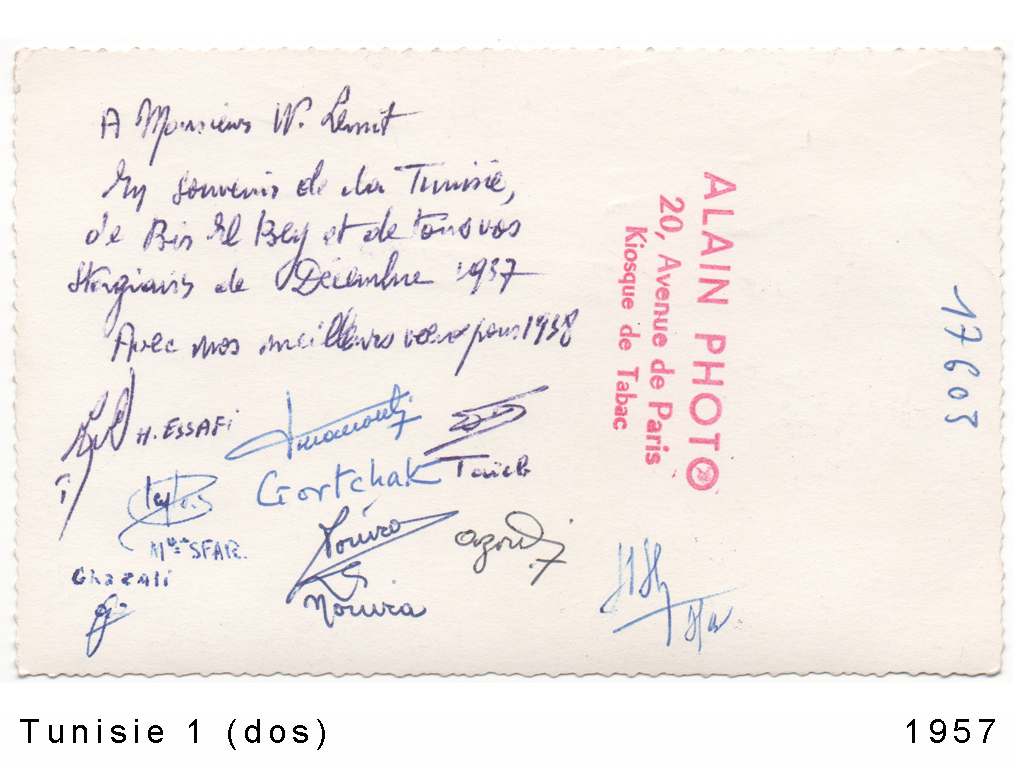 A Monsieur W. Lemit
En souvenir de la Tunisie,
de Bir El Bey et de tous vos
stagiaires de Décembre 1957
Avec nos meilleurs vœux pour 1958
H. ESSAFI
Taieb
Gortchak
Mme SFAR.
Ghazali
Nouira
Nouira
ALAIN PHOTO
20, Avenue de Paris
Kiosque de Tabac
17605
Tunisie 1 (dos)
1957